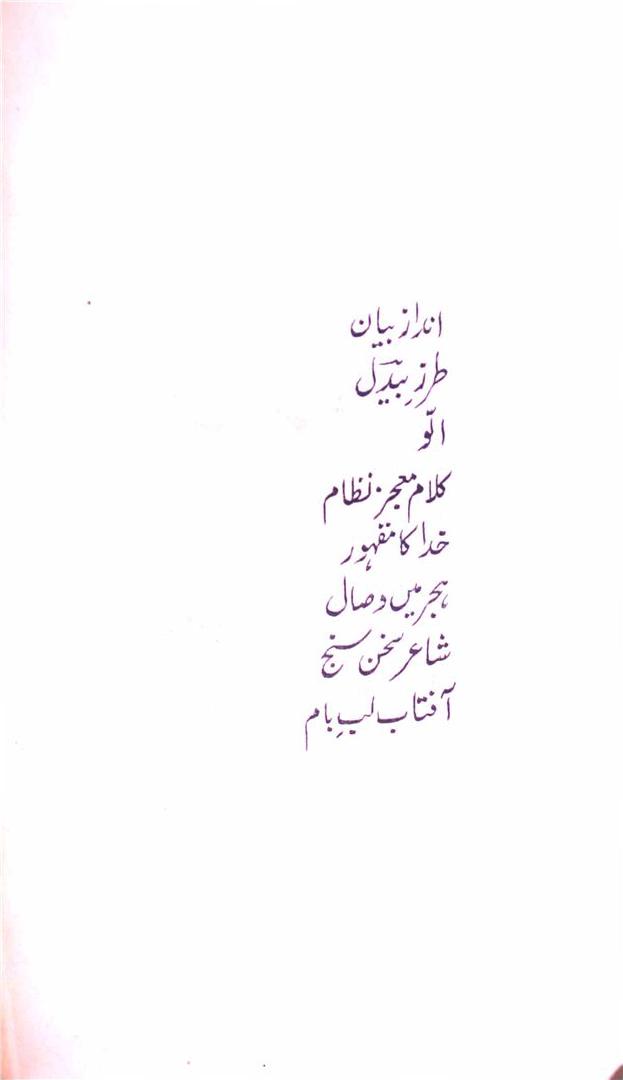 اندازِ بیان
طرزِ بیدلؔ
الّو
کلام معجز نظام
خدا کا مقہور
ہجر میں وصال
شاعر سخن سنج
آفتاب لبِ بام